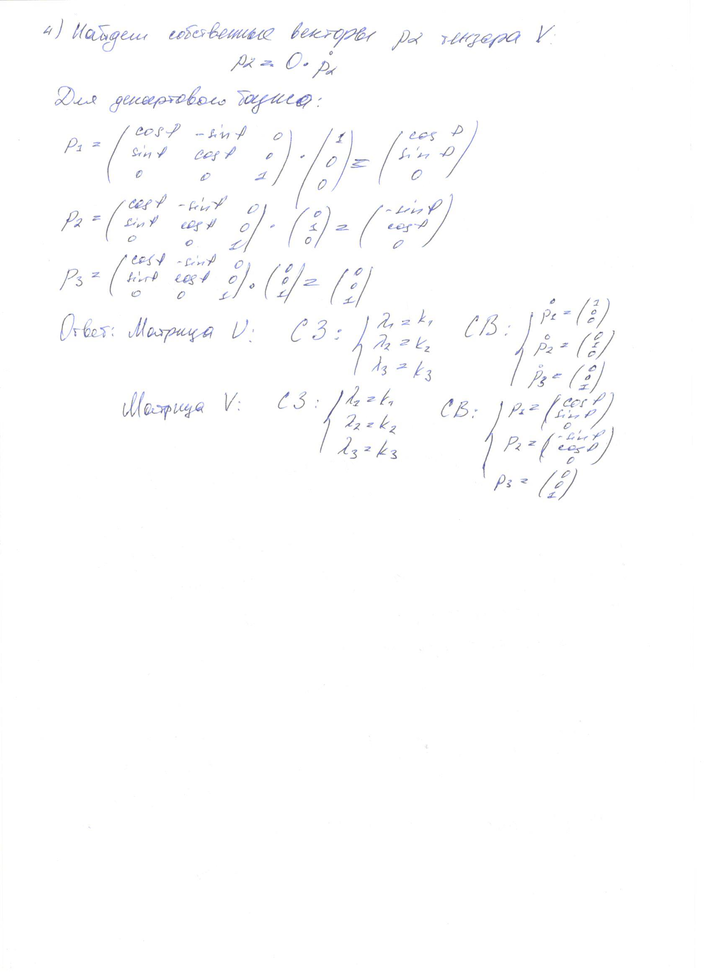 4) Найдем собственные векторы p2 тензора V:
p2 = O · p̊2
Для декартового базиса:
P1 = (cosφ -sinφ 0; sinφ cosφ 0; 0 0 1) · (1; 0; 0) = (cosφ; sinφ; 0)
P2 = (cosφ -sinφ 0; sinφ cosφ 0; 0 0 1) · (0; 1; 0) = (-sinφ; cosφ; 0)
P3 = (cosφ -sinφ 0; sinφ cosφ 0; 0 0 1) · (0; 0; 1) = (0; 0; 1)
Ответ: Матрица U: СЗ: { λ1 = k1 λ2 = k2 λ3 = k3 СВ: { p̊1 = (1; 0; 0) p̊2 = (0; 1; 0) p̊3 = (0; 0; 1)
Матрица V: СЗ: { λ1 = k1 λ2 = k2 λ3 = k3 СВ: { p1 = (cosφ; sinφ; 0) P2 = (-sinφ; cosφ; 0) P3 = (0; 0; 1)